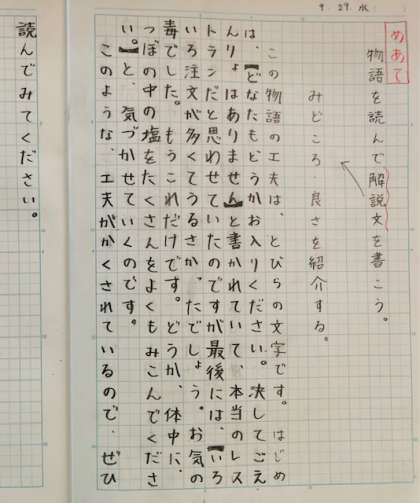 9.27.水
めあて
物語を読んで解説文を書こう。
みどころ 良さを紹介する。
この物語の工夫は、とびらの文字です。はじめ
は、『どなたもどうかお入りください。決してごえ
んりょはありません』と書かれていて、本当のレス
トランだと思わせていたのですが最後には、『いろ
いろ注文が多くてうるさか、たでしょう。お気の
毒でした。もうこれだけです。どうか、体中に、
っぼの中の塩をたくさんをよくもみこんでくださ
い。』と、気づかせていくのです。
このような、工夫がかくされているので、ぜひ
読んでみてください。